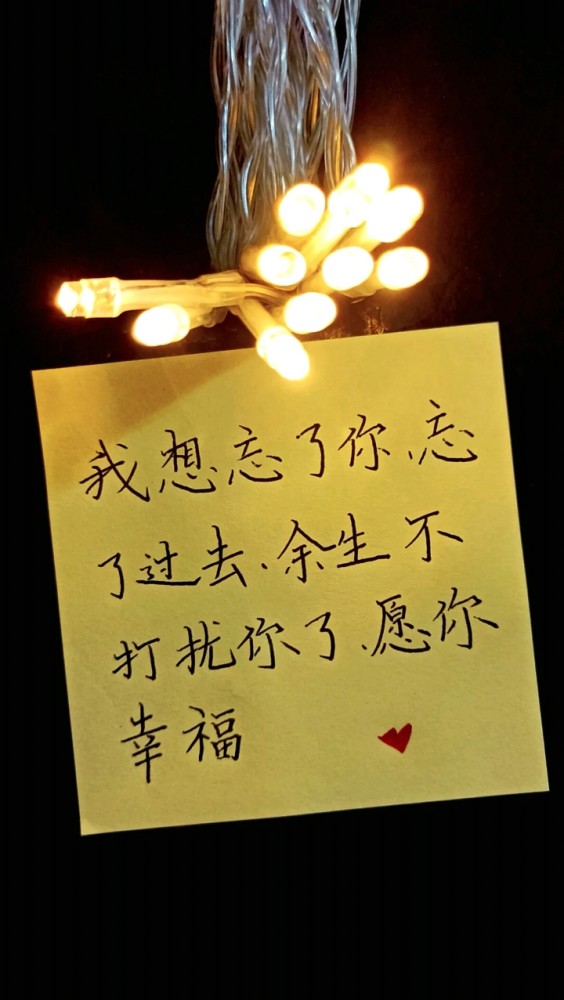 我想忘了你、忘
了过去、余生不
打扰你了、愿你
幸福